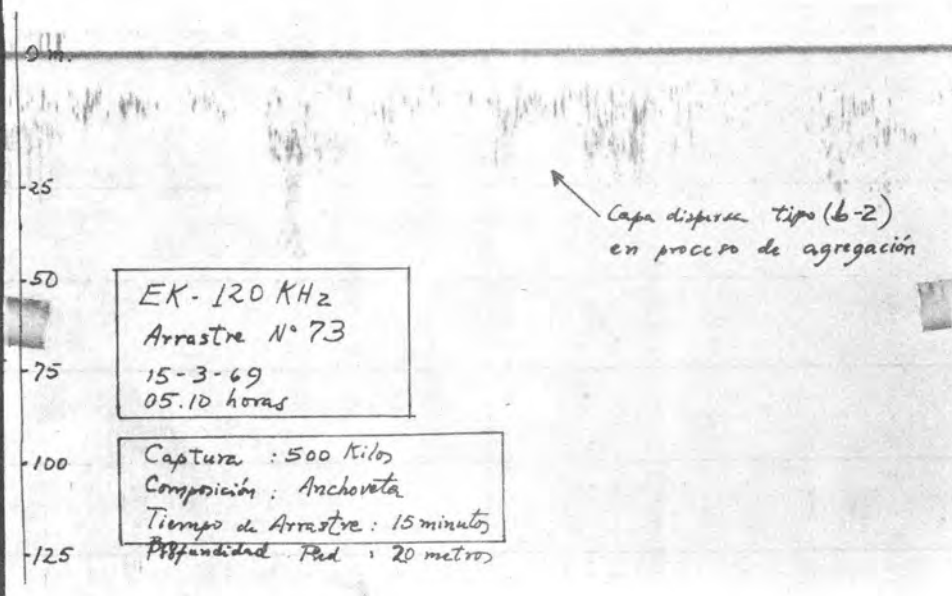 0 m.
-25
Capa dispersa tipo (b-2)
en proceso de agregación
-50
EK- 120 KHz
Arrastre N° 73
-75
15-3-69
05.10 horas
-100
Captura : 500 Kilos
Composición : Anchoveta
Tiempo de Arrastre : 15 minutos
-125
Profundidad Red : 20 metros